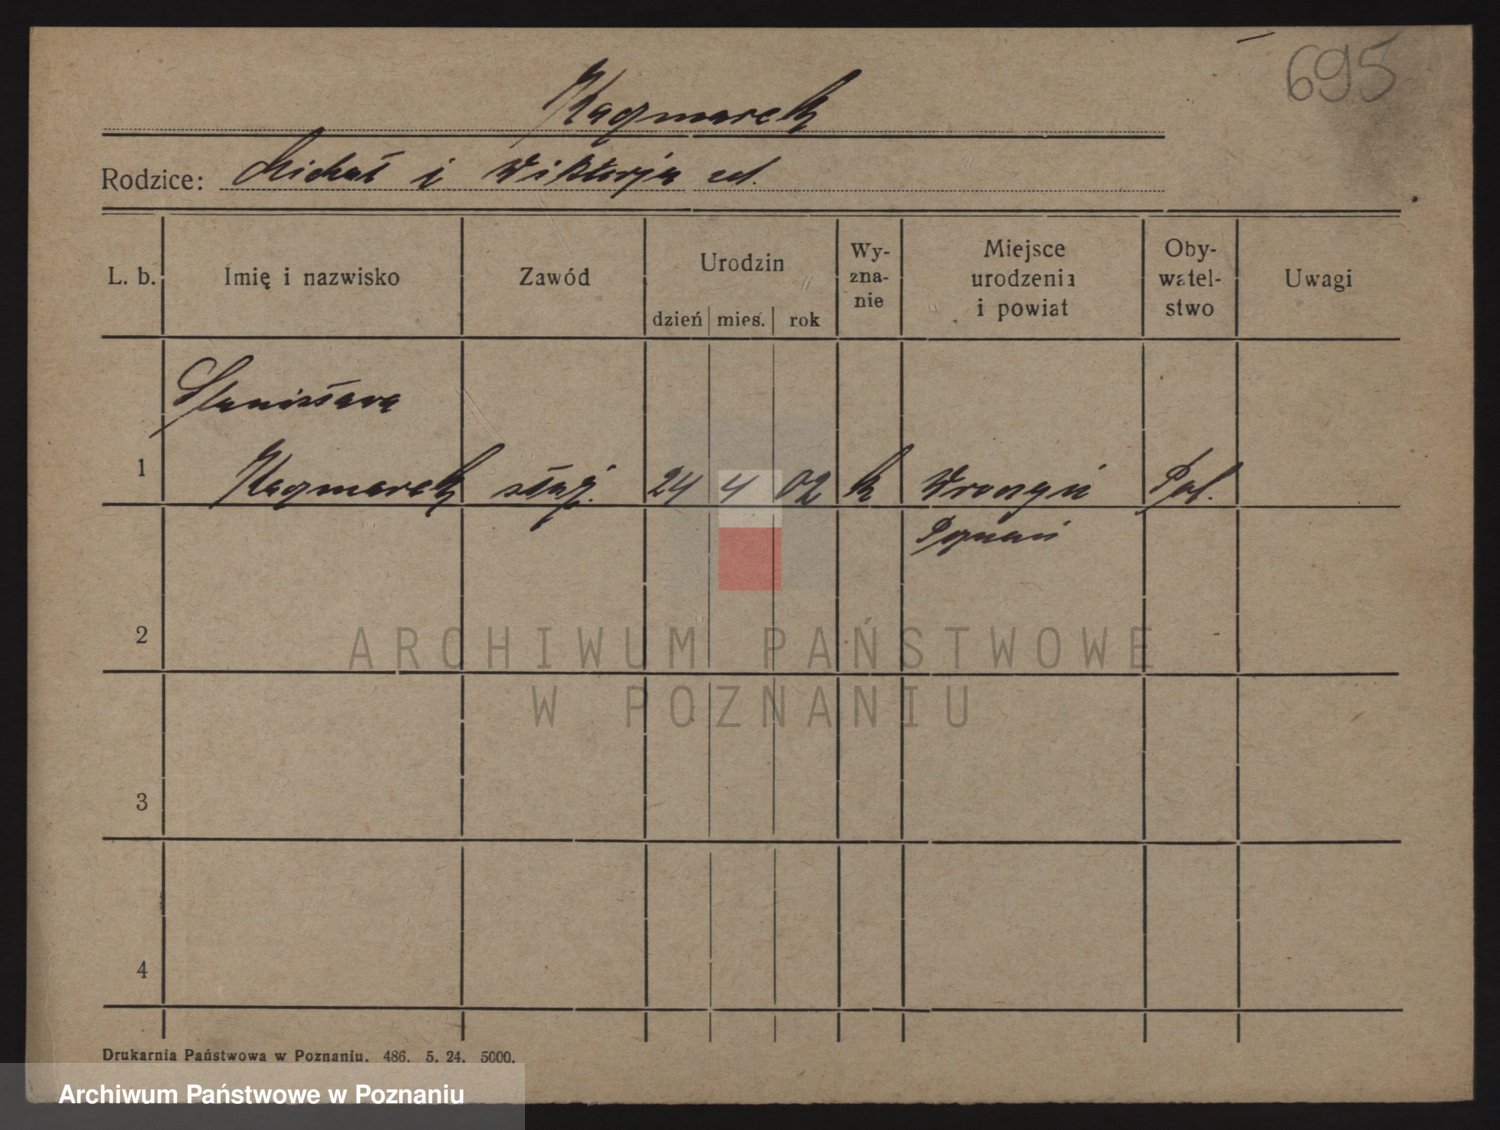 695
Kaczmarek
Rodzice: Michał i Wiktorja
L. b. Imię i nazwisko Zawód Urodzin dzień mies. rok Wy-zna-nie Miejsce urodzenia i powiat Oby-watel-stwo Uwagi
Stanisława
1 Kaczmarek służ. 24 4 02 k Wronczyn Pol.
Poznań
2
ARCHIWUM PAŃSTWOWE
W POZNANIU
3
4
Drukarnia Państwowa w Poznaniu. 486. 5. 24. 5000.
Archiwum Państwowe w Poznaniu